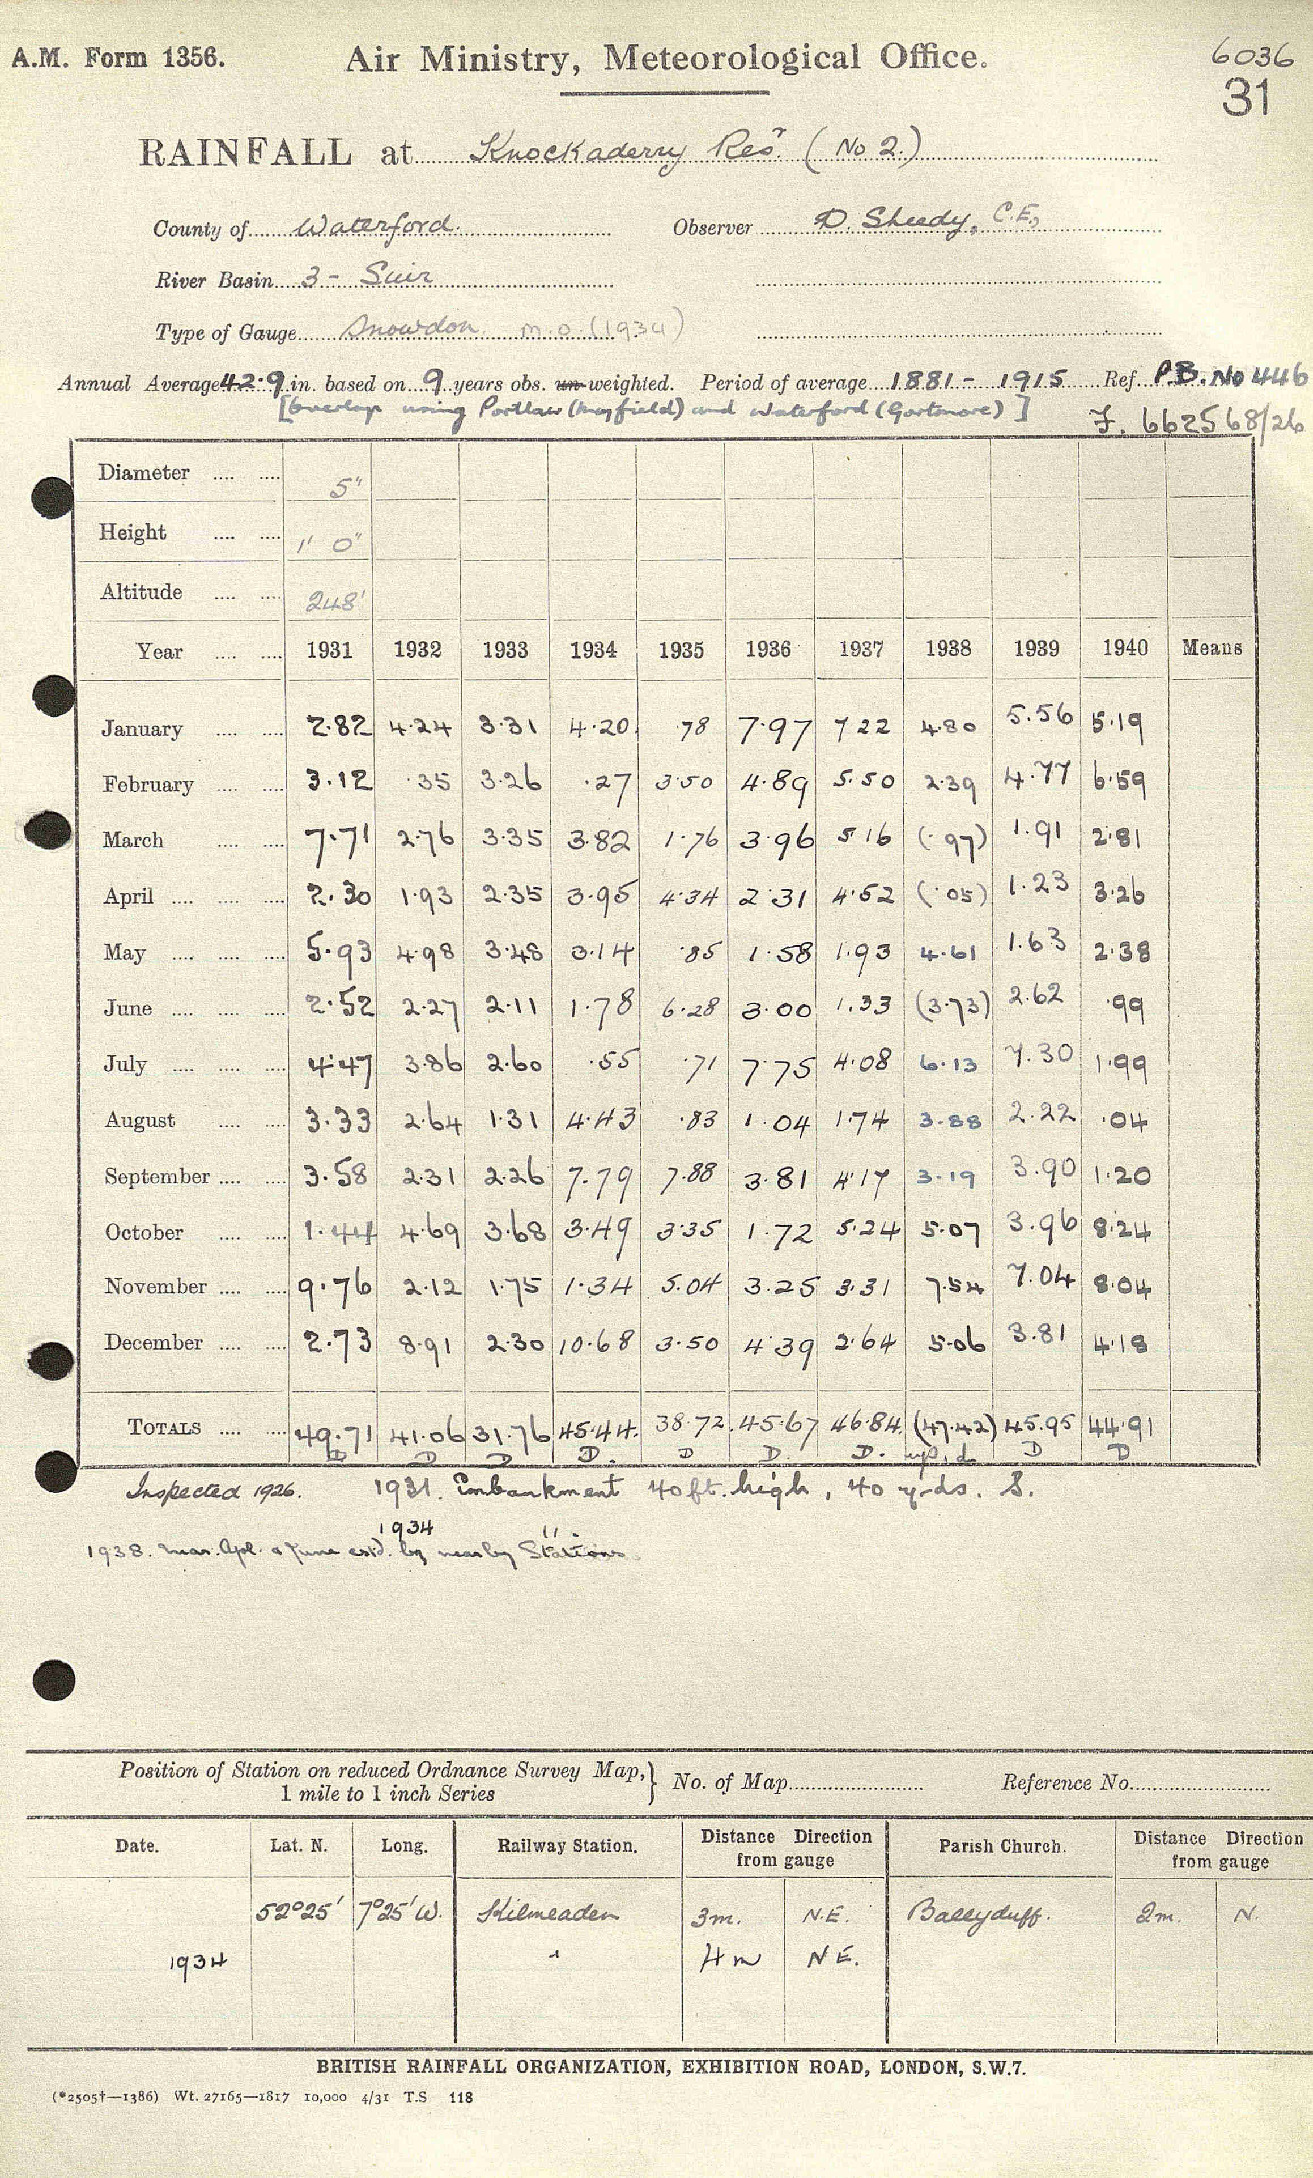 A.M. Form 1356.
Air Ministry, Meteorological Office.
6036
31
RAINFALL at Knockaderry Resr. (No 2.)
County of Waterford. Observer D. Sheedy, C.E.,
River Basin 3 - Suir
Type of Gauge Snowdon m.o. (1934)
Annual Average 42.9 in. based on 9 years obs. un-weighted. Period of average 1881 - 1915 Ref. P.B. No 446
[Overlap using Portlaw (Mayfield) and Waterford (Gortmore)] F. 662568/26
Diameter .... .... 5"
Height .... .... 1' 0"
Altitude .... .... 248'
Year .... .... 1931 1932 1933 1934 1935 1936 1937 1938 1939 1940 Means
January .... .... 2.82 4.24 3.31 4.20 .78 7.97 7.22 4.80 5.56 5.19
February .... .... 3.12 .35 3.26 .27 3.50 4.89 5.50 2.39 4.77 6.59
March .... .... 7.71 2.76 3.35 3.82 1.76 3.96 5.16 (.97) 1.91 2.81
April .... .... .... 2.30 1.93 2.35 3.95 4.34 2.31 4.52 (.05) 1.23 3.26
May .... .... .... 5.93 4.98 3.48 3.14 .85 1.58 1.93 4.61 1.63 2.38
June .... .... .... 2.52 2.27 2.11 1.78 6.28 3.00 1.33 (3.73) 2.62 .99
July .... .... .... 4.47 3.86 2.60 .55 .71 7.75 4.08 6.13 7.30 1.99
August .... .... 3.33 2.64 1.31 4.43 .83 1.04 1.74 3.88 2.22 .04
September .... .... 3.58 2.31 2.26 7.79 7.88 3.81 4.17 3.19 3.90 1.20
October .... .... 1.44 4.69 3.68 3.49 3.35 1.72 5.24 5.07 3.96 8.24
November .... .... 9.76 2.12 1.75 1.34 5.04 3.25 3.31 7.54 7.04 8.04
December .... .... 2.73 8.91 2.30 10.68 3.50 4.39 2.64 5.06 3.81 4.18
TOTALS .... .... 49.71 41.06 31.76 45.44. 38.72. 45.67 46.84. (47.42) 45.95 44.91
D D D D. D D. D. D D
Inspected 1926. 1931. Embankment 40 ft. high, 40 yds. S.
1934 " .
1938. Mar. Apl. & June estd. by nearby Stations.
Position of Station on reduced Ordnance Survey Map, } No. of Map Reference No.
1 mile to 1 inch Series
Date. Lat. N. Long. Railway Station. Distance Direction from gauge Parish Church. Distance Direction from gauge
52°25' 7°25' W. Kilmeaden 3m. N.E. Ballyduff. 2m. N.
1934 " 4m N E.
BRITISH RAINFALL ORGANIZATION, EXHIBITION ROAD, LONDON, S.W.7.
(*2505†—1386) Wt. 27165—1817 10,000 4/31 T.S 118